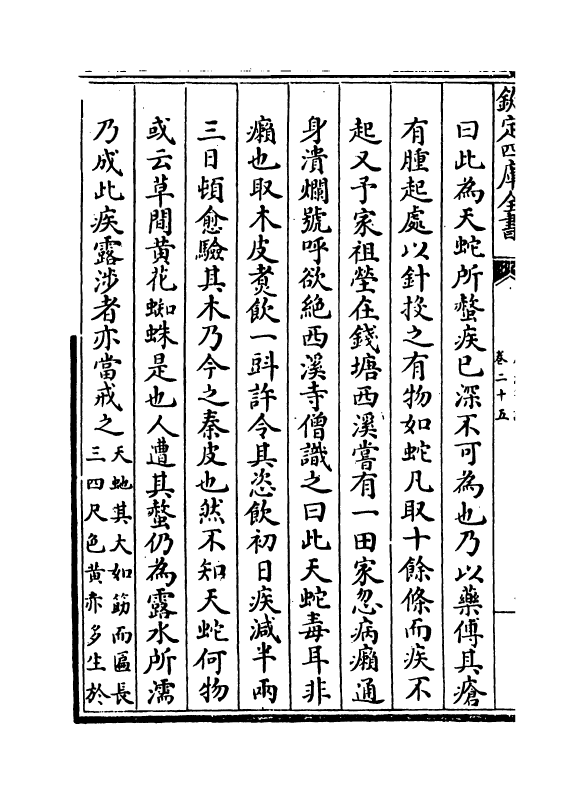 欽定四庫全書
卷二十五
曰此為天蛇所螫疾已深不可為也乃以藥傅其瘡
有腫起處以針投之有物如蛇凡取十餘條而疾不
起又予家祖塋在錢塘西溪嘗有一田家忽病癩通
身潰爛號呼欲絕西溪寺僧識之曰此天蛇毒耳非
癩也取木皮煑飲一㪷許令其恣飲初日疾減半兩
三日頓愈驗其木乃今之秦皮也然不知天蛇何物
或云草間黄花蜘蛛是也人遭其螫仍為露水所濡
乃成此疾露涉者亦當戒之
天虵其大如筯而匾長
三四尺色黄赤多生於